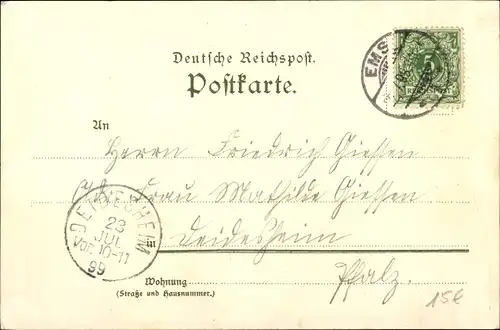 Deutsche Reichspost.
Postkarte.
EMS
5
REICHSPOST
An
Herrn Friedrich Giessen
Frau Mathilde Giessen
DEIDESHEIM
23
JUL
Vor. 10-11
99
in Deidesheim
Pfalz.
Wohnung
(Straße und Hausnummer.)
15€